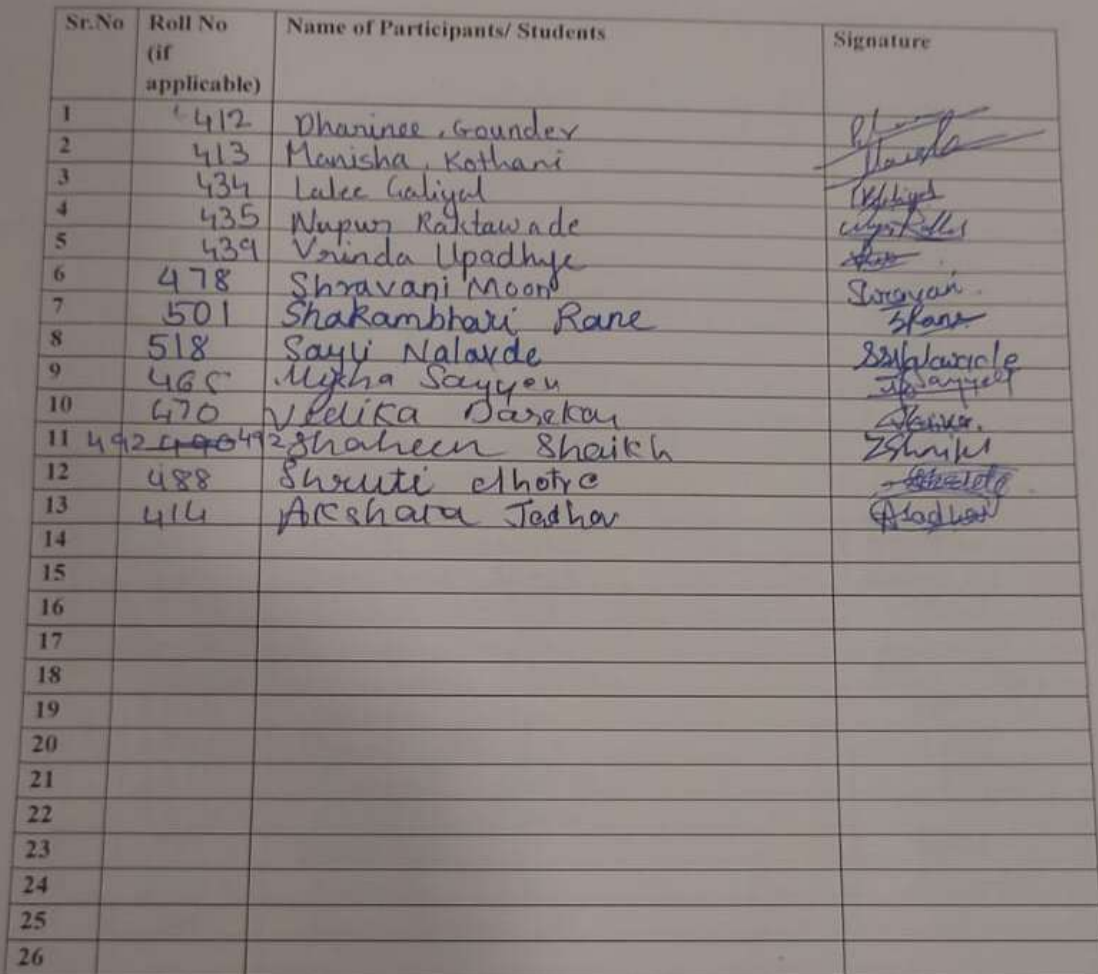 Sr.No Roll No (if applicable) Name of Participants/ Students Signature
1 412 Dharinee . Gounder
2 413 Manisha . Kothari
3 434 Lalee Galiyal
4 435 Nupur Raktawade
5 439 Vrinda Upadhye
6 478 Shravani Moon Sravani
7 501 Shakambhari Rane SRane
8 518 Sayli Nalavde SSNalawade
9 465 Sayyed
10 470 Vedika Darekar
11 492 490 492 Shaheen Shaikh ZShaikh
12 488 Shruti dhotre
13 414 Akshara Jadhav AJadhav
14
15
16
17
18
19
20
21
22
23
24
25
26